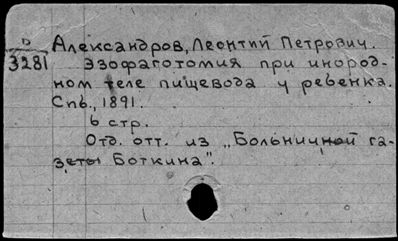 D
3281
Александров, Леонтий Петрович.
Эзофаготомия при инород-
ном теле пищевода у ребенка.
Спб., 1891.
6 стр.
Отд. отт. из „Больничной га-
зеты Боткина".